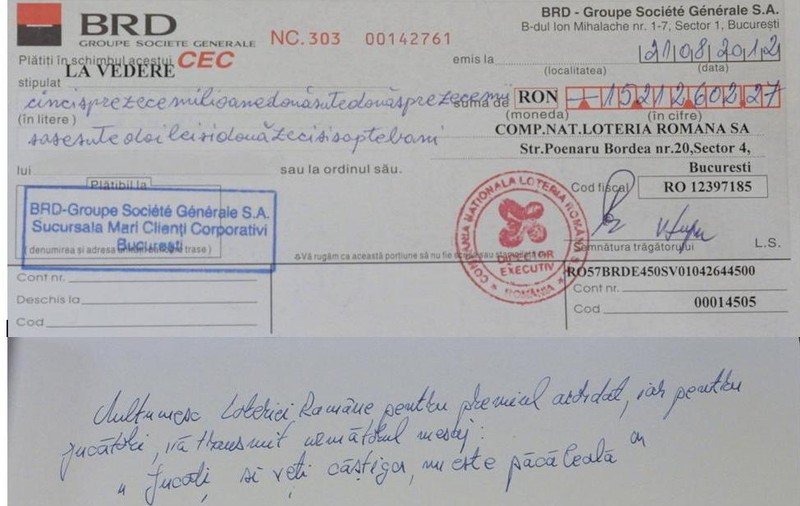 BRD
GROUPE SOCIETE GENERALE
NC.303 00142761
BRD - Groupe Société Générale S.A.
B-dul Ion Mihalache nr. 1-7, Sector 1, Bucureşti
Plătiţi în schimbul acestui CEC
emis la 21 08 2012
(localitatea) (data)
stipulat LA VEDERE
cincisprezecemilioanedouăsutedouăsprezecemii suma de RON 15212602,27
(în litere) (moneda) (în cifre)
sasesutedoileisidouăzecisisaptebani
COMP.NAT.LOTERIA ROMANA SA
Str.Poenaru Bordea nr.20,Sector 4,
Bucuresti
lui sau la ordinul său.
Cod fiscal RO 12397185
Plătibil la
BRD-Groupe Société Générale S.A.
Sucursala Mari Clienţi Corporativi
Bucureşti
(denumirea şi adresa trase)
COMPANIA NATIONALA LOTERIA ROMANA S.A.
DIRECTOR
EXECUTIV
ROMÂNIA
Semnătura trăgătorului L.S.
&Vă rugăm ca această porţiune să nu fie
Cont nr.
Deschis la
Cod
RO57BRDE450SV01042644500
Cont nr.
Cod 00014505
Multumesc Loteriei Române pentru premiul acordat, iar pentru
jucători, vă transmit următorul mesaj:
"Jucați si veți câștiga, nu este păcăleală"